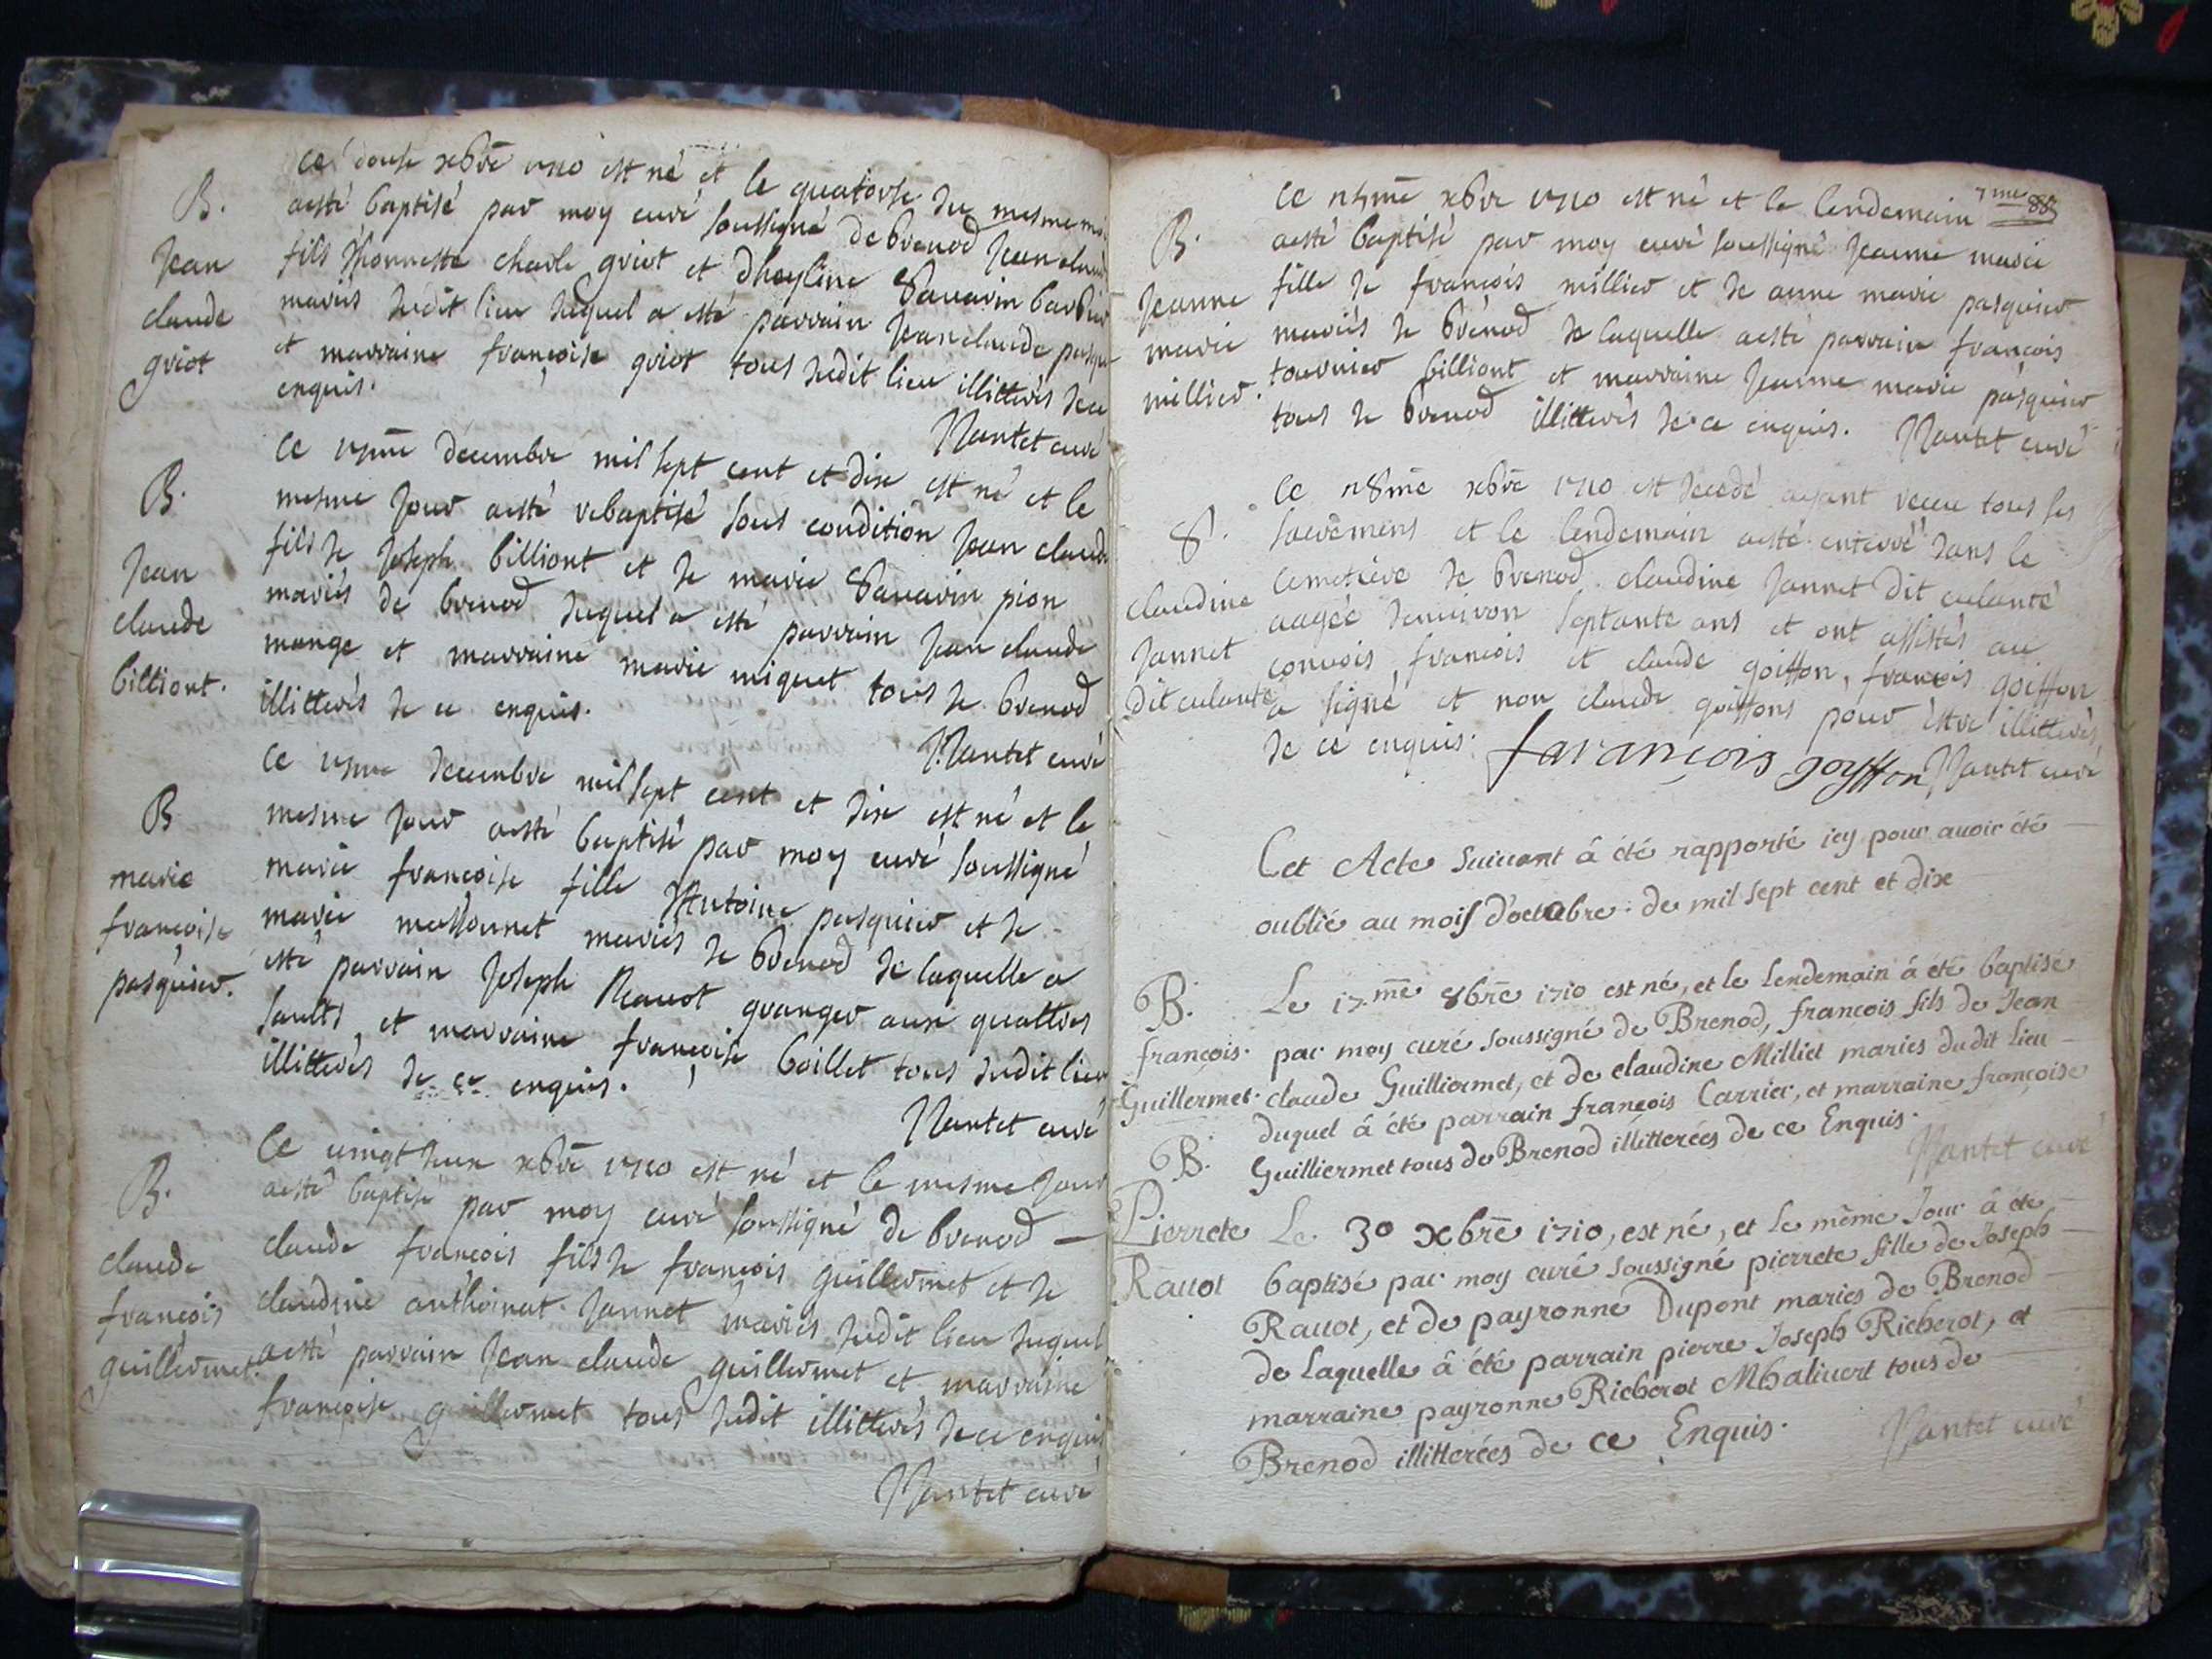 B.
Jean
claude
griot
ce douse xbre 1710 est né et le quatorse du mesme
aesté baptisé par moy curé soussigné de brenod Jean claude
fils d'honneste charle griot et dheyline Savarin barbier
mariés dudit lieu duquel a esté parrain Jean claude
et marraine françoise griot tous dudit lieu illitterés de ce
enquis.
Nantet curé
B.
Jean
claude
billiont.
Ce decembre mil sept cent et dix est né et le
mesme jour aesté rebaptisé sous condition Jean claude
fils de Joseph billiont et de marie Savarin pion
mariés de brenod duquel a esté parrain Jean claude
monge et marraine marie miquet tous de brenod
illitterés de ce enquis.
Nantet curé
B
marie
francoise
pasquier.
Ce decembre mil sept cent et dix est né et le
mesme jour aesté baptisé par moy curé soussigné
marie francoise fille d'Antoine pasquier et de
marie massonnet mariés de brenod de laquelle a
esté parrain Joseph Ravot granger aux quattres
saults et marraine françoise boillet tous dudit lieu
illitterés de ce enquis.
Nantet curé
B.
claude
françois
guillermet.
Ce vingt deux xbre 1710 est né et le mesme jour
aesté baptisé par moy curé soussigné de brenod
claude françois fils de françois guillermet et de
claudine anthoinat Jannet mariés dudit lieu duquel
aesté parrain Jean claude guillermet et marraine
françoise guillermet tous dudit illitterés de ce enquis
Nantet curé
B.
Jeanne
marie
millier.
Ce xbre 1710 est né et le lendemain
aesté baptisé par moy curé soussigné Jeanne marie
fille de françois millier et de anne marie pasquier
mariés de brenod de laquelle aesté parrain françois
tournier billiont et marraine Jeanne marie pasquier
tous de brenod illitterés de ce enquis. Nantet curé
S.
claudine
Jannet
dit culante
Ce xbre 1710 est decedé ayant receu tous ses
sacremens et le lendemain aesté enterré dans le
cemetiere de brenod claudine Jannet dit culante
aagée denviron septante ans et ont assistés au
convois françois et claude goiffon, françois goiffon
a signé et non claude goiffons pour estre illitterés
de ce enquis. faranciois goyffon Nantet curé
Cet Acte Suivant â été rapporté icy pour avoir été
oublié au mois d'octobre de mil sept cent et dix
B.
françois.
Guillermet.
Le 17me 8bre 1710 est né, et le Lendemain â été baptisé
par moy curé soussigné de Brenod, françois fils de Jean
claude Guilliermet, et de claudine Milliet mariés dudit lieu
duquel â été parrain françois Carrier, et marraine françoise
Guilliermet tous de Brenod illitterées de ce Enquis.
Nantet curé
B.
Pierrete
Rauot
Le 30 xbre 1710, est né, et le même Jour â été
baptisé par moy curé soussigné pierrete fille de Joseph
Rauot, et de payronne Dupont mariés de Brenod
de Laquelle â été parrain pierre Joseph Richerot, et
marraine payronne Richerot Mhalivert tous de
Brenod illitterées de ce Enquis.
Nantet curé